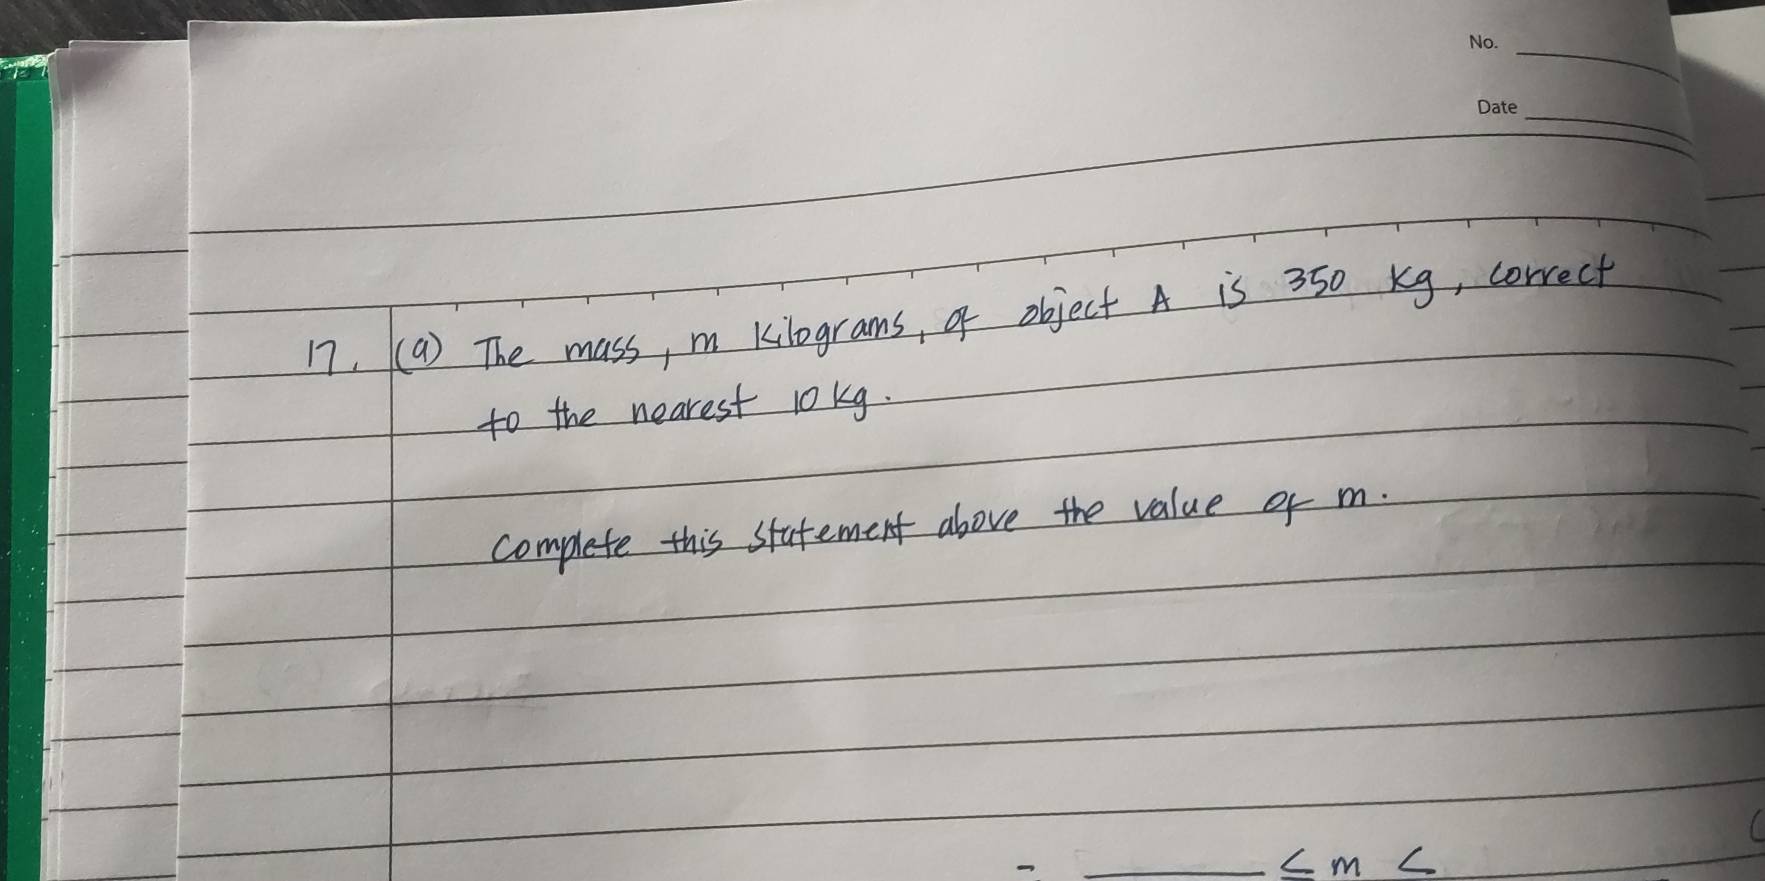 No.
Date
17. (a) The mass, m kilograms, of object A is 350 kg, correct
to the nearest 10 kg.
complete this statement above the value of m.
- ______ ≤ m <